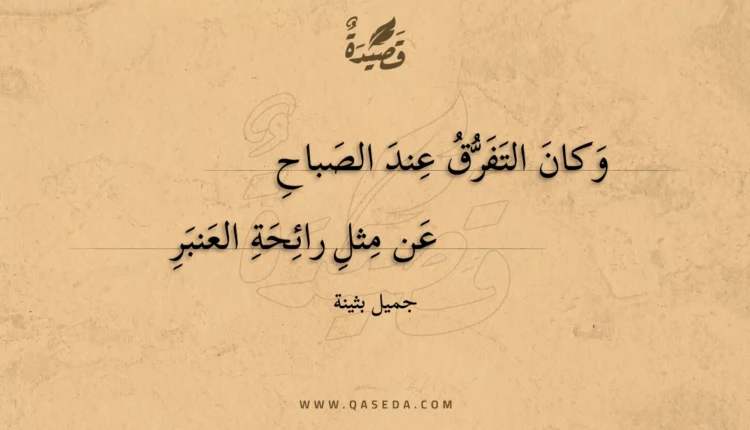 قَصِيْدَةٌ
وَكانَ التَفَرُّقُ عِندَ الصَباحِ
عَن مِثلِ رائِحَةِ العَنبَرِ
جميل بثينة
WWW.QASEDA.COM